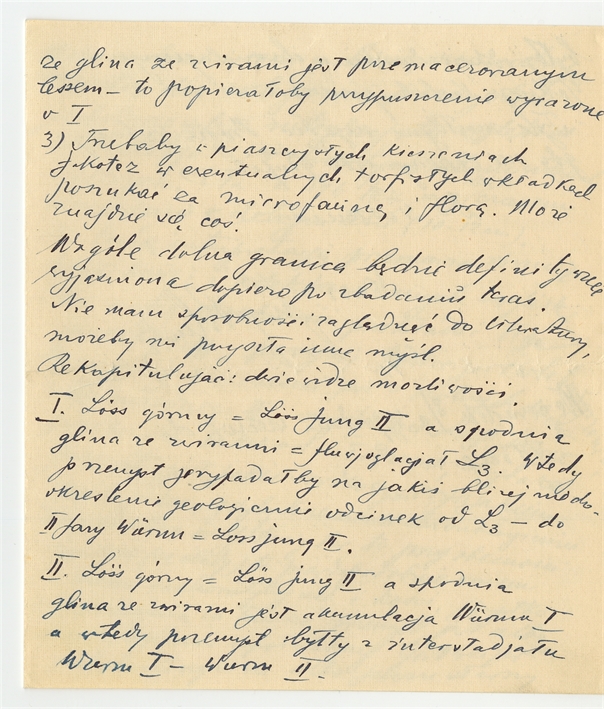 że glina ze żwirami jest przemacerowanym
lessem – to popierałoby przypuszczenie wyrażone
w I
3) Trzebaby w piaszczystych kieszeniach
jakoteż w ewentualnych torfistych wkładkach
poszukać za mikrofauną i florą. Może
znajdzie się coś.
Wogóle dolna granica będzie definitywnie
wyjaśniona dopiero po zbadaniu teras.
Nie mam sposobności zaglądnąć do literatury,
możeby mi przyszła inna myśl.
Rekapitulując: dwie widzę możliwości.
I. Löss górny = Löss jung II a spodnia
glina ze żwirami = fluwjoglacjał L3. Wtedy
przemysł przypadałby na jakiś bliżej niedo-
określenie geologicznie odcinek od L3 – do
II fazy Würm = Löss jung II.
II. Löss górny = Löss jung II a spodnia
glina ze żwirami jest akumulacja Würmu I
a wtedy przemysł byłby z interstadjału
Würm I – Würm II.